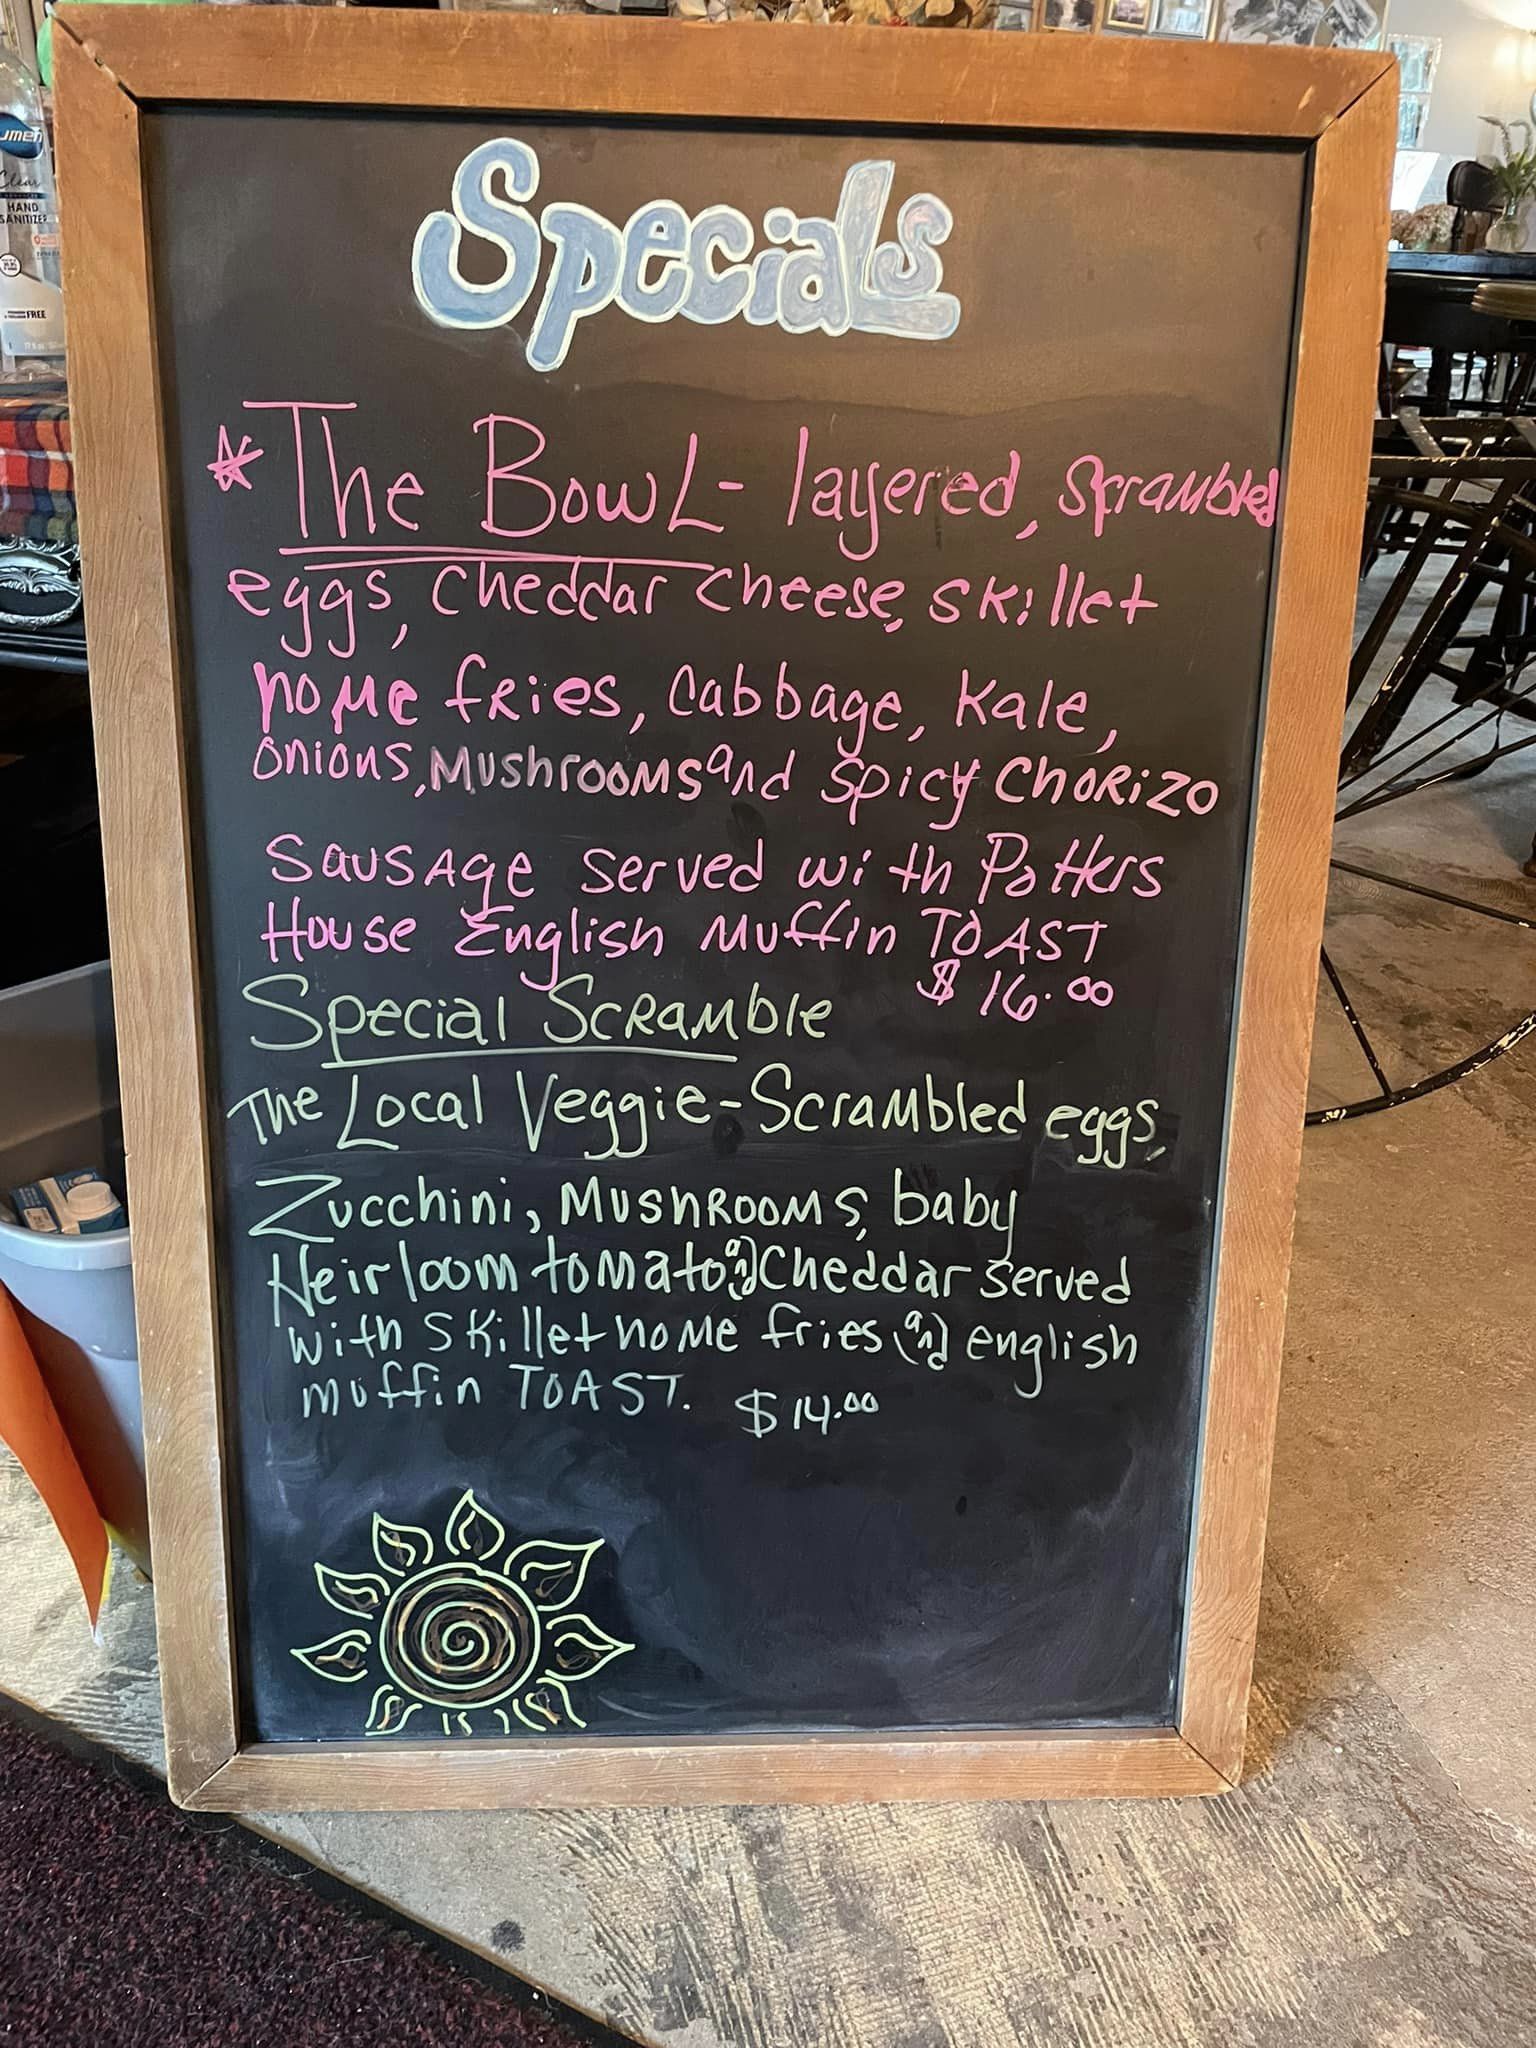 Specials
*The Bowl - layered, Scrambled
eggs, cheddar cheese, skillet
home fries, cabbage, kale,
onions, Mushrooms and spicy Chorizo
Sausage served with Potters
House English Muffin TOAST
$ 16.00
Special Scramble
The Local Veggie - Scrambled eggs,
Zucchini, Mushrooms, baby
Heirloom tomato and Cheddar served
with skillet home fries and english
muffin TOAST. $14.00
Clear
HAND
SANITIZER
FREE